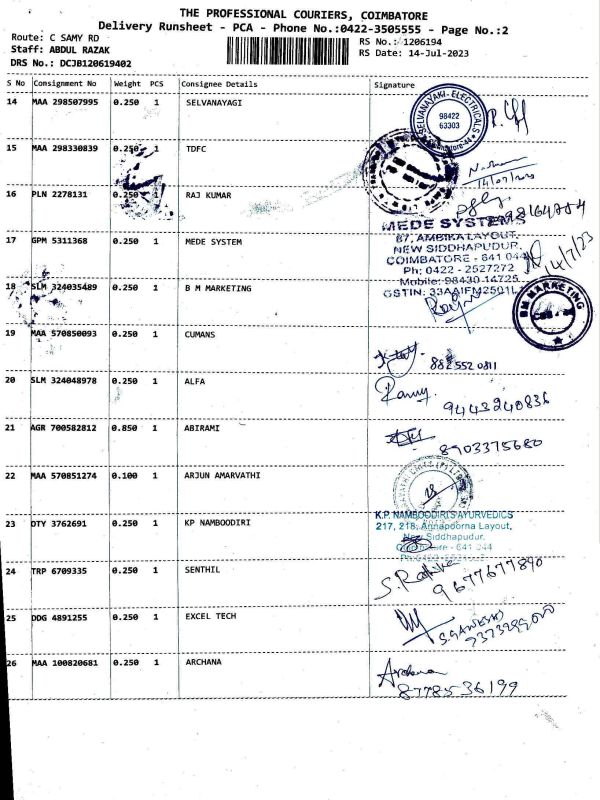 THE PROFESSIONAL COURIERS, COIMBATORE
Delivery Runsheet - PCA - Phone No.:0422-3505555 - Page No.:2
Route: C SAMY RD
RS No.: 1206194
Staff: ABDUL RAZAK
RS Date: 14-Jul-2023
DRS No.: DCJB120619402
S No Consignment No Weight PCS Consignee Details Signature
14 MAA 298507995 0.250 1 SELVANAYAGI
SELVANAYAKI - ELECTRICALS
98422
63303
15 MAA 298330839 0.250 1 TDFC
16 PLN 2278131 0.250 1 RAJ KUMAR
17 GPM 5311368 0.250 1 MEDE SYSTEM
MEDE SYSTEMS
87, AMBIKA LAYOUT,
NEW SIDDHAPUDUR,
COIMBATORE - 641 044
Ph: 0422 - 2527272
Mobile: 98430 14725
GSTIN: 33AAIFM2501L
14/7/23
18 SLM 324035489 0.250 1 B M MARKETING
BM MARKETING
19 MAA 570850093 0.250 1 CUMANS
882552 0811
20 SLM 324048978 0.250 1 ALFA
9443240836
21 AGR 700582812 0.850 1 ABIRAMI
8903375680
22 MAA 570851274 0.100 1 ARJUN AMARVATHI
23 DTY 3762691 0.250 1 KP NAMBOODIRI
K.P. NAMBOODIRI'S AYURVEDICS
217, 218, Annapoorna Layout,
New Siddhapudur,
641 044
24 TRP 6709335 0.250 1 SENTHIL
9677677890
25 DDG 4891255 0.250 1 EXCEL TECH
26 MAA 100820681 0.250 1 ARCHANA
Archana
8778536199